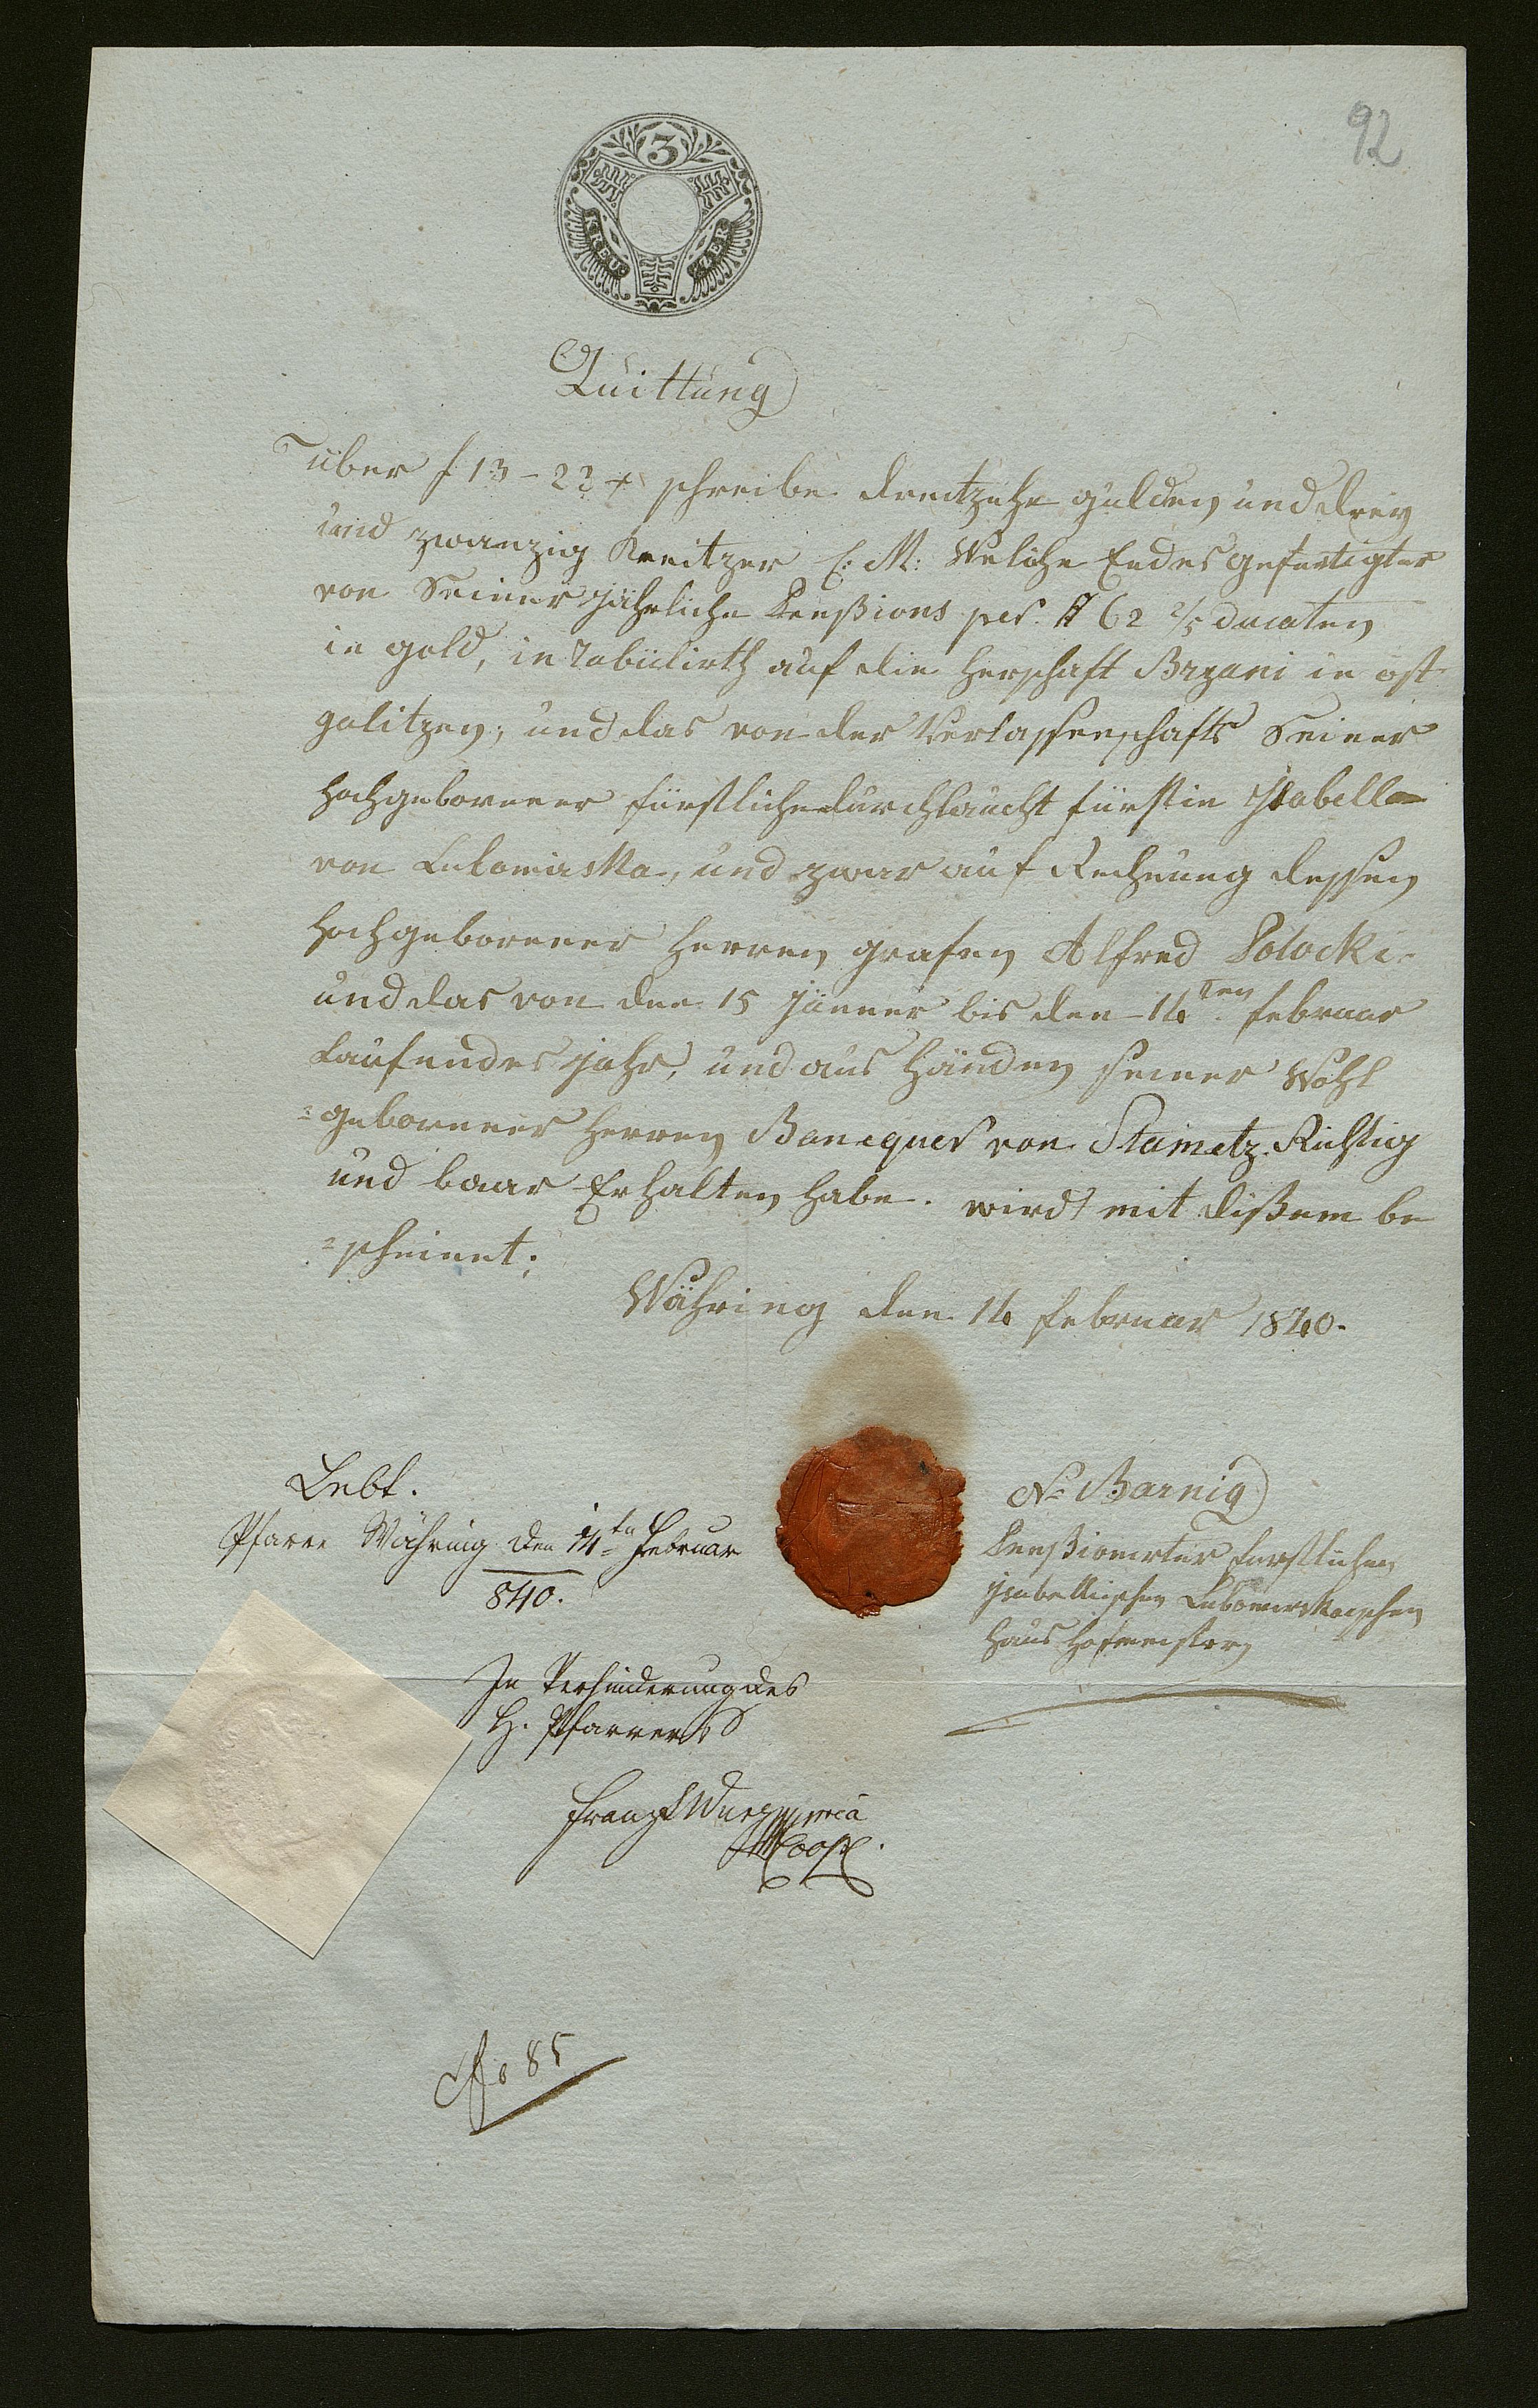 92
3
KREU ZER
Quittung
über f 13 – 23 x schreibe dreitzehn gulden und drey
und zwanzig Kreitzer C: M: Welche Endes gefertigter
von Seiner jährliche Penßions per # 62 2/5 ducaten
in gold, in Tabulirth auf die Herschaft Brzani in ost
galitzen; und das von der Verlassenschafts Seiner
Hochgeborener fürstliche durchlaucht fürstin Isabella
von Lubomirska, und zwar auf Rechnung dessen
Hochgeborener Herren grafen Alfred Potocki.
und das von den 15 Jänner bis den 14ten februar
Laufendes jahr, und aus Händen seiner Wohl
=geborener Herren Banequer von Stametz Richtig
und baar Erhalten habe. wird mit dißem be
=scheinet;
Währing den 14 februar 1840.
Lebt.
Pfarre Währing den 14ten Februar
840.
N: Barnig
Penßionirter furstlichen
Isabellischen Lubomirskaischen
Haus Hofmeister
In Verhinderung des
H. Pfarrers
Franz mpria
Coop.
No 85